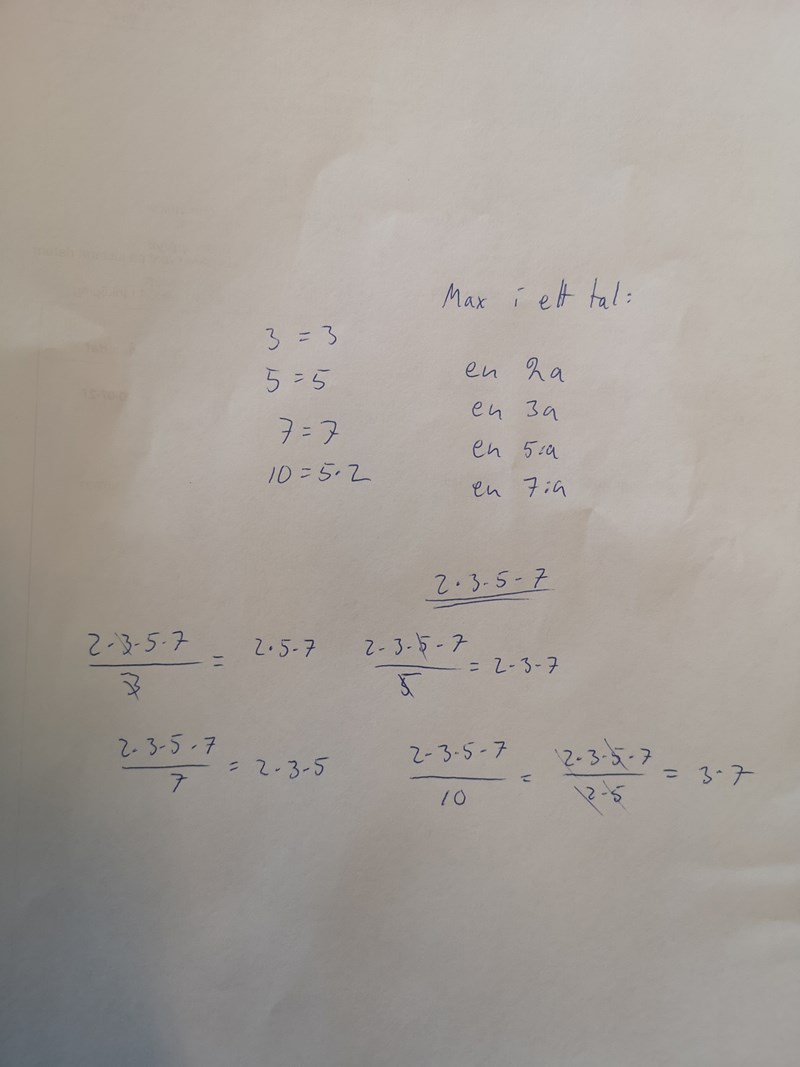 Max i ett tal:
3 = 3
5 = 5
7 = 7
10 = 5·2
en 2a
en 3a
en 5:a
en 7:a
2·3·5·7
2·3·5·7 / 3 = 2·5·7
2·3·5·7 / 5 = 2·3·7
2·3·5·7 / 7 = 2·3·5
2·3·5·7 / 10 = 2·3·5·7 / 2·5 = 3·7